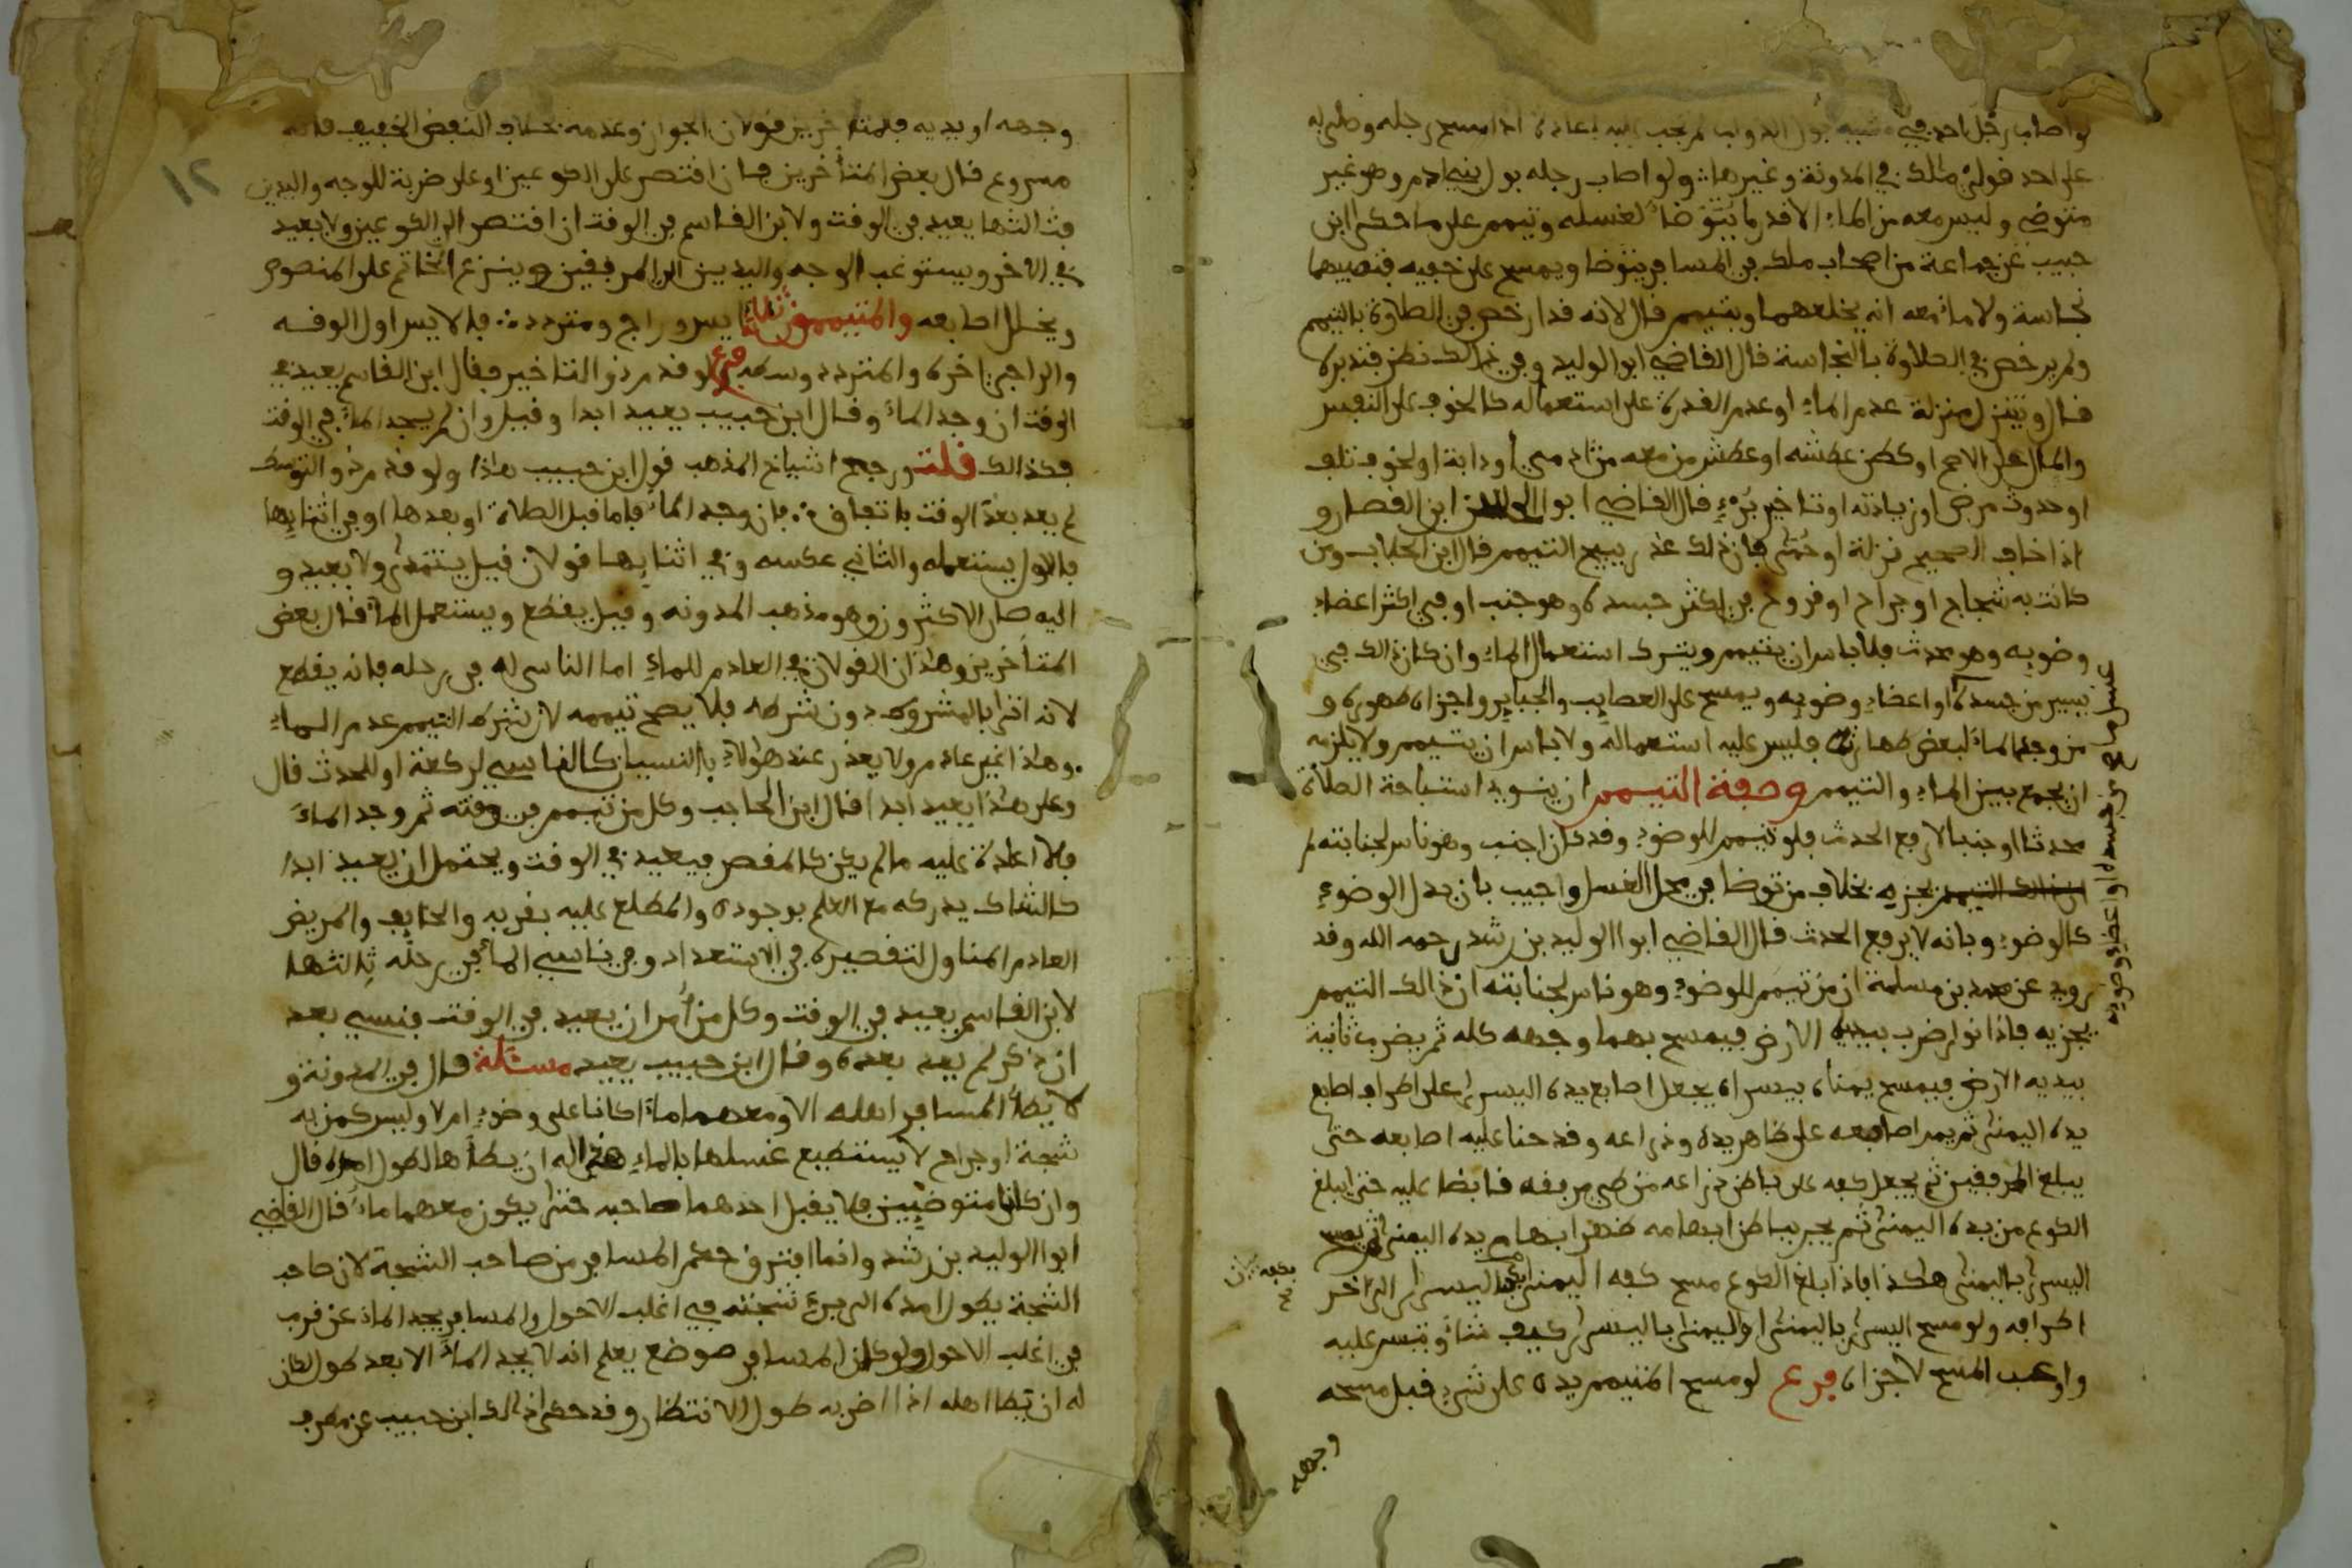 لو اصاب رجل احد في خفيه بول الدواب لم يجب عليه اعادة اذا مسح رجله وصلى به
على احد قولي ملك في المدونة وغيرها ولو اصاب رجله بول بني ادم وهو غير
متوضي وليس معه من الماء الا قدر ما يتوضأ لغسله وتيمم على ما حكى ابن
حبيب عن جماعة من اصحاب ملك في المسافر يتوضا ويمسح على خفيه فتصيبهما
نجاسة ولا ماء معه انه يخلعهما ويتيمم قال لانه قد ارخص في الصلاة بالتيمم
ولم يرخص في الصلاة بالنجاسة قال القاضي ابو الوليد وفي ذالك نظر فتدبره
قال ويتنزل منزلة عدم الماء او عدم القدرة على استعماله كالخوف على النفس
والمال على الاصح او كظن عطشه او عطش من معه من ادمي او دابة او لخوف تلف
او حدوث مرض او زيادته او تاخير برء قال القاضي ابو ابن القصار و
اذا خاف الصحيح نزلة او حمى فان ذلك عذر يبيح التيمم قال ابن الجلاب ومن
كانت به شجاج او جراح او قروح في اكثر جسده وهو جنب او في اكثر اعضاء
وضويه وهو محدث فلا باس ان يتيمم ويترك استعمال الماء وان كان ذالك في
يسير من جسده او اعضاء وضويه ويمسح على العصايب والجباير واجزاه طهوره و
من وجد الماء لبعض طهارته فليس عليه استعماله ولا باس ان يتيمم ولا يلزمه
ان يجمع بين الماء والتيمم وصفة التيمم ان ينوي استباحة الصلاة
محدثا او جنبا لا رفع الحدث فلو تيمم للوضوء وقد كان اجنب وهو ناس لجنابته لم
يجزه بخلاف من توضا في محل الغسل واجيب بان بدل الوضوء
كالوضوء وبانه لا يرفع الحدث قال القاضي ابو الوليد بن رشد رحمه الله وقد
روي عن محمد بن مسلمة ان من تيمم للوضوء وهو ناس لجنابته ان ذالك التيمم
يجزيه فاذا نوى ضرب بيديه الارض فيمسح بهما وجهه كله ثم يضرب ثانية
بيديه الارض فيمسح يمناه بيسراه يجعل اصابع يده اليسرى على اطراف اصابع
يده اليمنى ثم يمر اصابعه على ظاهر يده وذراعه وقد حنا عليه اصابعه حتى
يبلغ المرفقين ثم يجعل كفه على باطن ذراعه من طي مرفقه قابضا عليه حتى يبلغ
الكوع من يده اليمنى ثم يجر بباطن ابهامه ظهر ابهام يده اليمنى ثم يمسح
اليسرى باليمنى هكذا فاذا بلغ الكوع مسح كفه اليمنى بكفه اليسرى الى اخر
اطرافه ولو مسح اليسرى باليمنى او اليمنى باليسرى كيف شاء وتيسر عليه
واوعب المسح لاجزاه فرع لو مسح المتيمم يده على شيء قبل مسحه
وجهه
وجهه او يديه فللمتاخرين قولان الجواز وعدمه بخلاف النفض الخفيف فانه
مشروع قال بعض المتأخرين فان اقتصر على الكوعين او على ضربة للوجه واليدين
فثالثها يعيد في الوقت ولابن القاسم في الوقت ان اقتصر الى الكوعين ولا يعيد
في الاخر ويستوعب الوجه واليدين الى المرفقين وينزع الخاتم على المنصوص
ويخلل اصابعه والمتيممون ثلاثة ايس وراج ومتردد فالايس اول الوقت
والراجي اخره والمتردد وسطه فرع لو قدم ذو التاخير فقال ابن القاسم يعيد في
الوقت ان وجد الماء وقال ابن حبيب يعيد ابدا وقيل وان لم يجد الماء في الوقت
فكذالك قلت ورجح اشياخ المذهب قول ابن حبيب هذا ولو قدم ذو التوسط
لم يعد بعد الوقت باتفاق فان وجد الماء فاما قبل الصلاة او بعدها او في اثنايها
فالاول يستعمله والثاني عكسه وفي اثنايها قولان قيل يتمادى ولا يعيد و
اليه صار الاكثرون وهو مذهب المدونه وقيل يقطع ويستعمل الماء قال بعض
المتأخرين وهذان القولان في العادم للماء اما الناسي له في رحله فانه يقطع
لانه اتى بالمشروط دون شرطه فلا يصح تيممه لان شرط التيمم عدم الماء
وهذا غير عادم ولا يعذر عند هؤلاء بالنسيان كالناسي لركعة او للحدث قال
وعلى هذا يعيد ابدا قال ابن الحاجب وكل من تيمم في وقته ثم وجد الماء
فلا اعادة عليه مالم يكن كالمقصر فيعيد في الوقت ويحتمل ان يعيد ابدا
كالشاك يدركه مع العلم بوجوده والمطلع عليه بقربه والخايف والمريض
العادم المناول لتقصيره في الاستعداد وفي ناسي الماء في رحله ثالثها
لابن القاسم يعيد في الوقت وكل من أمر ان يعيد في الوقت فنسي بعد
ان ذكر لم يعد بعده وقال ابن حبيب يعيد مسئلة قال في المدونة و
لا يطأ المسافر اهله الا ومعهما ماء اكانا على وضوء ام لا وليس كمن به
شجة او جراح لا يستطيع غسلها بالماء هذا له ان يطأها لطول امره قال
وان كانا متوضيين فلا يقبل احدهما صاحبه حتى يكون معهما ماء قال القاضي
ابو الوليد بن رشد وانما افترق حكم المسافر من صاحب الشجة لان صاحب
الشجة يطول امده الى برء شجته في اغلب الاحوال والمسافر يجد الماء عن قرب
في اغلب الاحوال ولو كان المسافر في موضع يعلم انه لا يجد الماء الا بعد طول لكان
له ان يطا اهله اذا اضر به طول الانتظار وقد حكى ذالك ابن حبيب عن مطرف